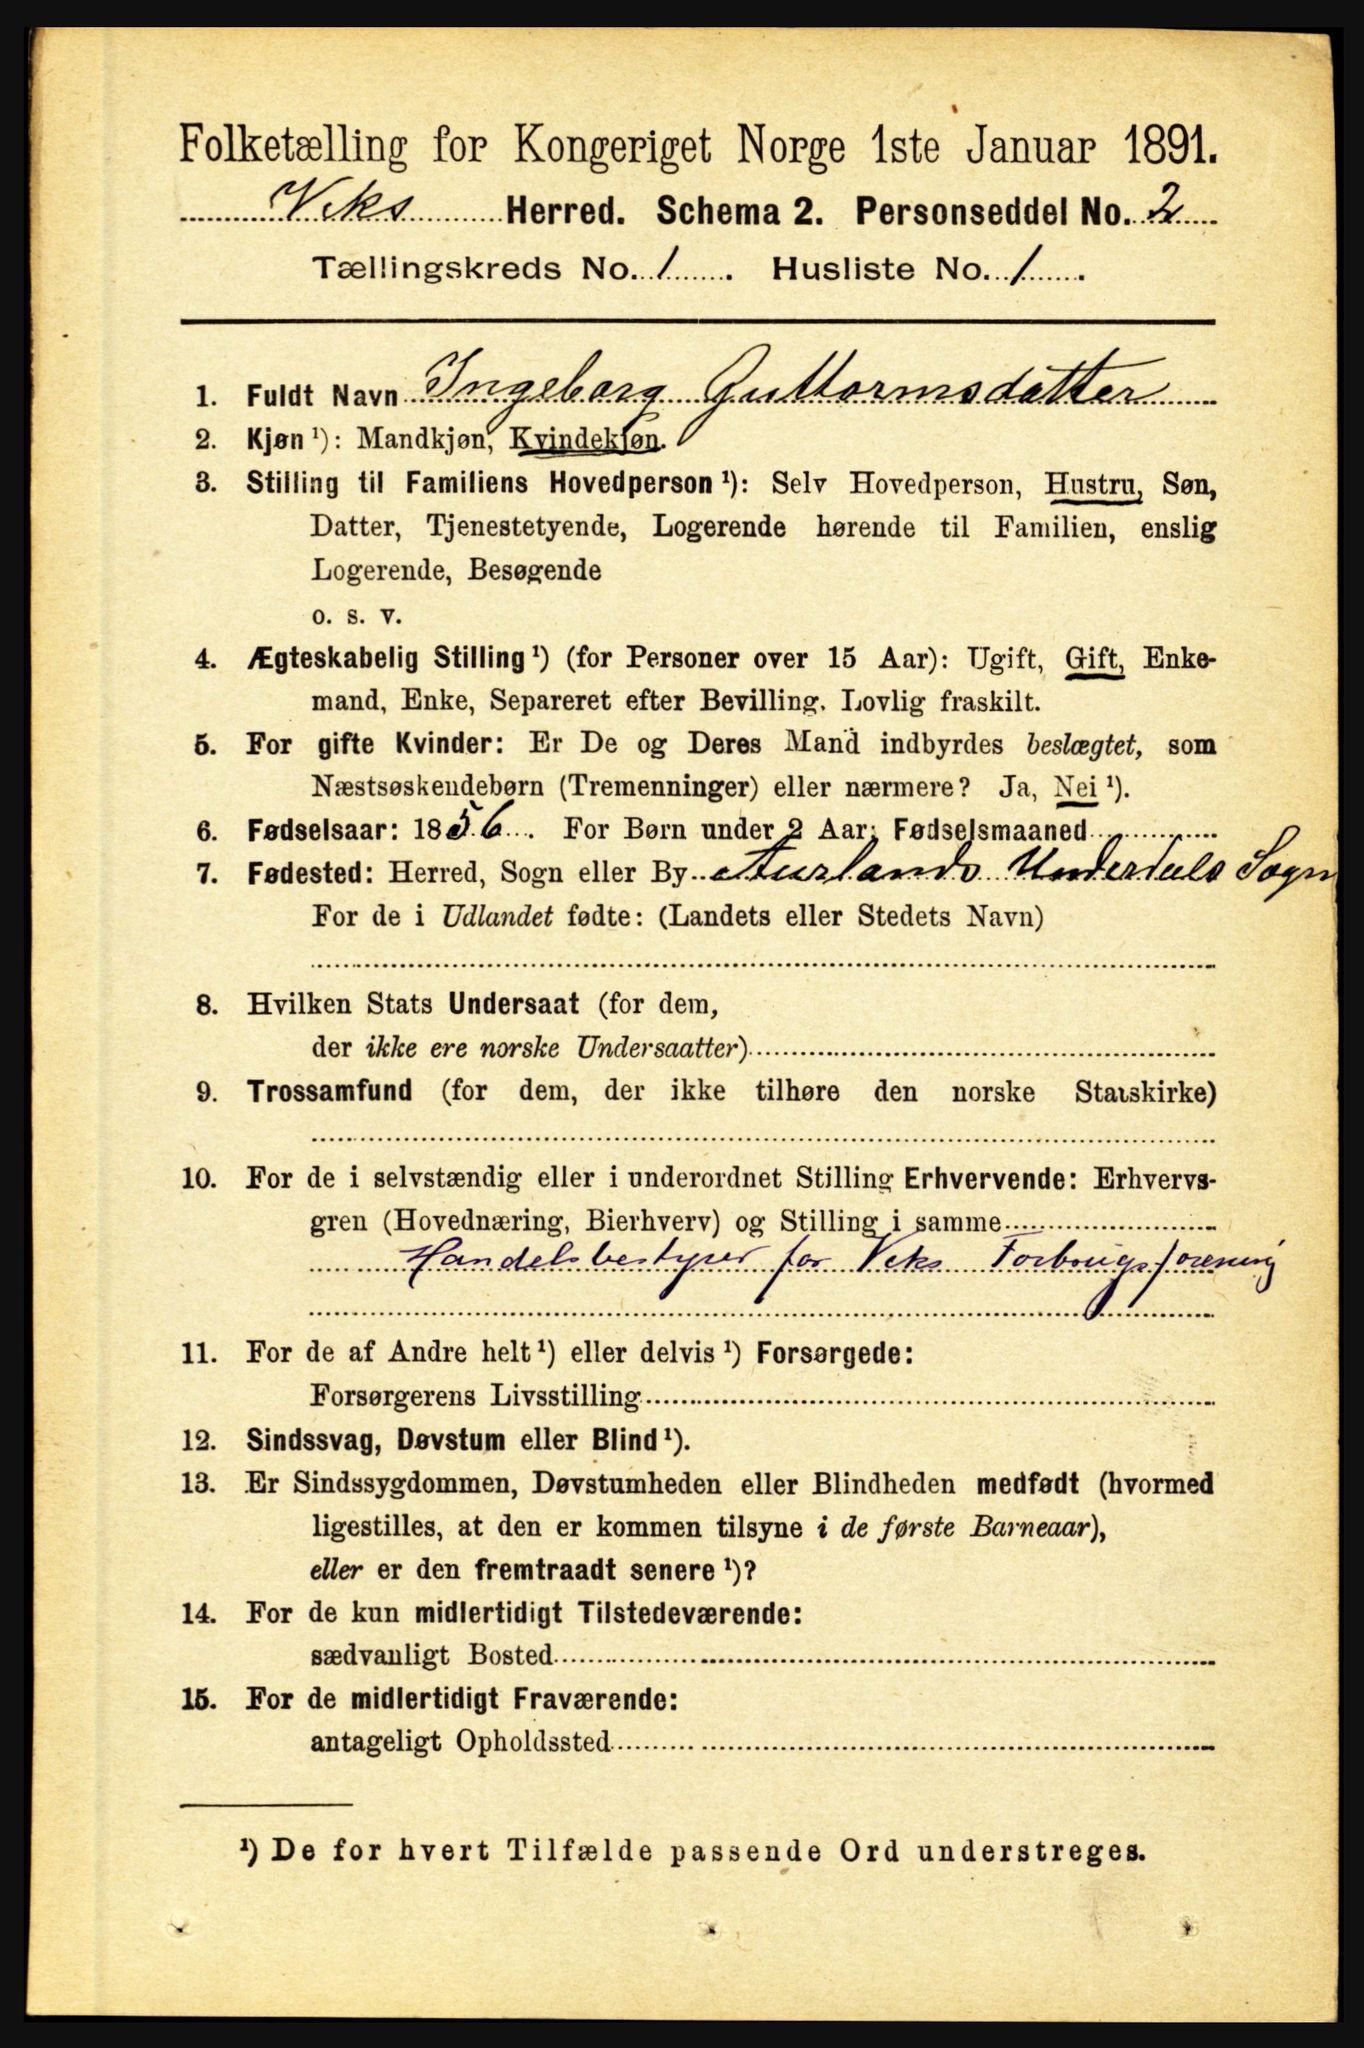 Folketælling for Kongeriget Norge 1ste Januar 1891.
Viks Herred. Schema 2. Personseddel No. 2
Tællingskreds No. 1. Husliste No. 1.
1. Fuldt Navn Ingeborg Guttormsdatter
2. Kjøn ¹): Mandkjøn, Kvindekjøn.
3. Stilling til Familiens Hovedperson ¹): Selv Hovedperson, Hustru, Søn,
Datter, Tjenestetyende, Logerende hørende til Familien, enslig
Logerende, Besøgende
o. s. v.
4. Ægteskabelig Stilling ¹) (for Personer over 15 Aar): Ugift, Gift, Enke-
mand, Enke, Separeret efter Bevilling. Lovlig fraskilt.
5. For gifte Kvinder: Er De og Deres Mand indbyrdes beslægtet, som
Næstsøskendebørn (Tremenninger) eller nærmere? Ja, Nei ¹).
6. Fødselsaar: 1856. For Børn under 2 Aar: Fødselsmaaned
7. Fødested: Herred, Sogn eller By Aurlands Underdals Sogn
For de i Udlandet fødte: (Landets eller Stedets Navn)
8. Hvilken Stats Undersaat (for dem,
der ikke ere norske Undersaatter)
9. Trossamfund (for dem, der ikke tilhøre den norske Statskirke)
10. For de i selvstændig eller i underordnet Stilling Erhvervende: Erhvervs-
gren (Hovednæring, Bierhverv) og Stilling i samme
Handelsbestyrer for Viks Forbrugsforening
11. For de af Andre helt ¹) eller delvis ¹) Forsørgede:
Forsørgerens Livsstilling
12. Sindssvag, Døvstum eller Blind ¹).
13. Er Sindssygdommen, Døvstumheden eller Blindheden medfødt (hvormed
ligestilles, at den er kommen tilsyne i de første Barneaar),
eller er den fremtraadt senere ¹)?
14. For de kun midlertidigt Tilstedeværende:
sædvanligt Bosted
15. For de midlertidigt Fraværende:
antageligt Opholdssted
¹) De for hvert Tilfælde passende Ord understreges.